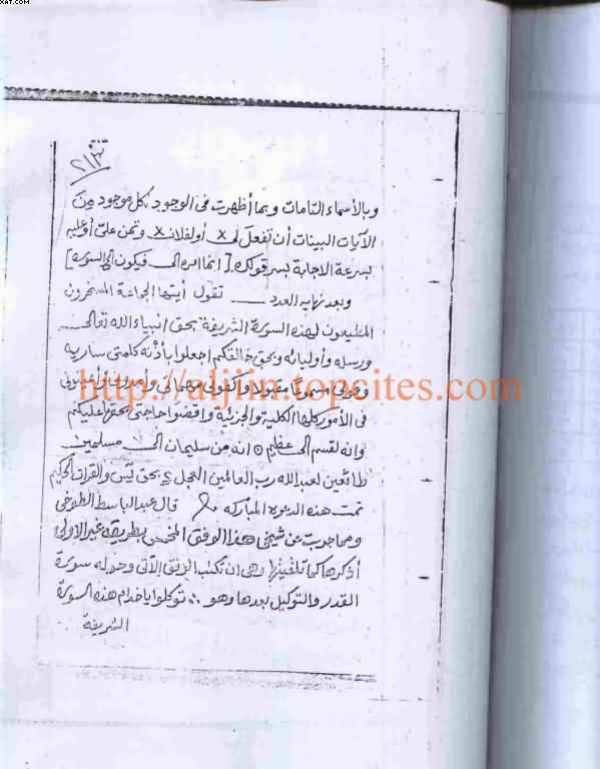 XAT.COM
٢١٣
وبالأسماء التامات وبما أظهرت فى الوجود لكل موجود من
الآيات البينات أن تفعل لى x أو لفلان x وتمن علىّ أو عليه
بسرعة الاجابة بسر قولك [ انما امره الى فيكون الى السورة ]
وبعد نهاية العدد ــــ تقول أيتها الجماعة المسخرون
المطيعون لهذه السورة الشريفة بحق انبياء الله تعالى
ورسله وأوليائه وبحق خالقكم اجعلوا باذنه كلمتى سارية
وقولى مسموعا مقبولا واكفونى مهماتى
http://aljiin.topcities.com
فى الأمور كلها الكلية والجزئية واقضوا حاجتى بحقها عليكم
وانه لقسم الى عظيم ٥ انه من سليمان الى مسلمين
طائعين لعبد الله رب العالمين العجل بحق يس والقران الحكيم
تمت هذه الدعوة المباركه قال عبد الباسط الطوخى
ومما جربت عن شيخى هذا الوفق المخمس بطريقة غير الاولى
أذكرها كما تلقيتها وهى ان تكتب الوفق الآتى وحوله سورة
القدر والتوكيل بعدها وهو :. توكلوا ياخدام هذه السورة
الشريفة